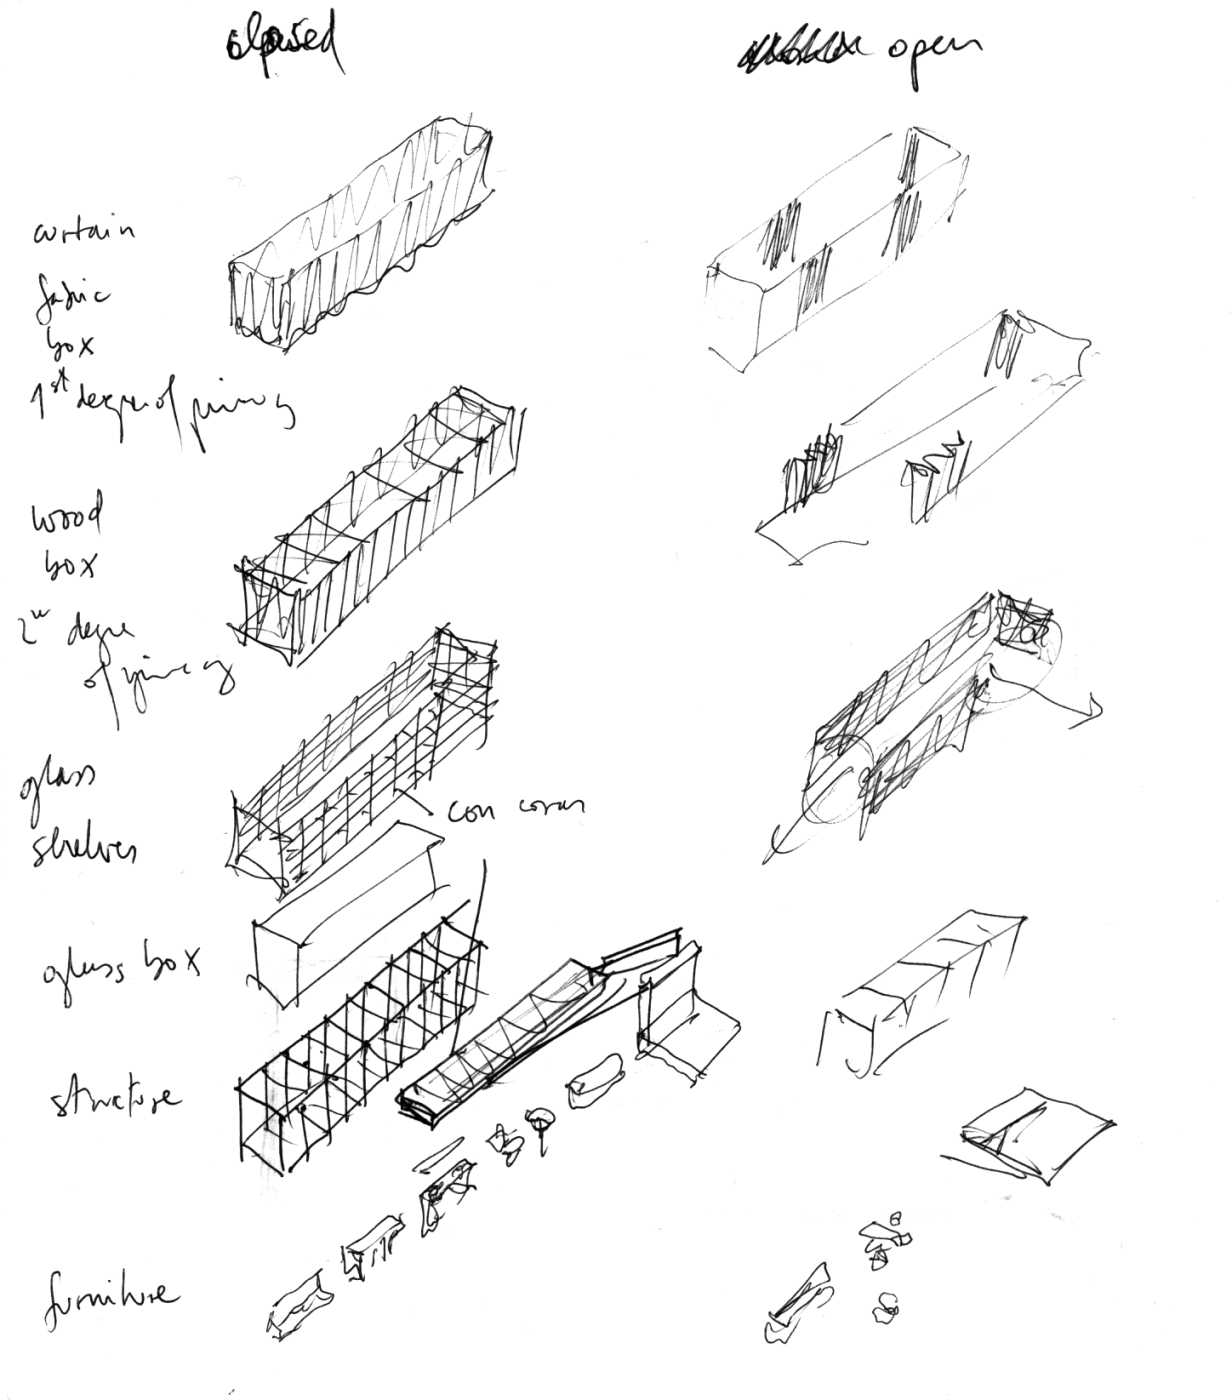 closed
open
curtain
fabric
box
1st degree of privacy
wood
box
2nd degree
of privacy
glass
shelves
glass box
structure
furniture